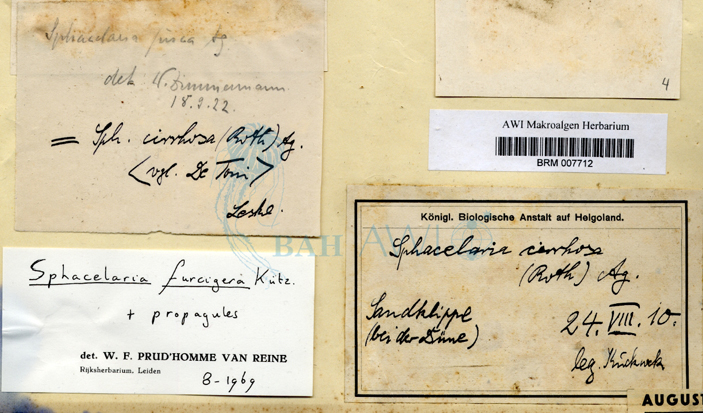 Sphacelaria fusca Ag.
det. W. Zimmermann.
18.9.22.
= Sph. cirrhosa (Roth) Ag.
<vgl. De Toni>
Leske.
4
AWI Makroalgen Herbarium
BRM 007712
BAH AWI
Sphacelaria furcigera Kütz.
+ propagules
det. W. F. PRUD'HOMME VAN REINE
Rijksherbarium, Leiden
8-1969
Königl. Biologische Anstalt auf Helgoland.
Sphacelaria cirrhosa
(Roth) Ag.
Sandklippe
(bei der Düne)
24. VIII. 10.
leg. Kuckuck
AUGUST